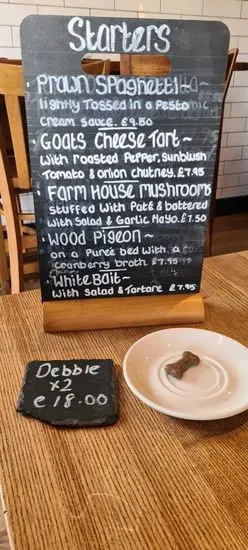 Starters
Prawn Spaghetti~
lightly Tossed in a Pesto
cream sauce. £9.50
Goats Cheese Tart~
with roasted Pepper, sunblush
Tomato & onion chutney. £7.95
Farm House Mushrooms
stuffed with Paté & battered
with Salad & Garlic Mayo. £7.50
Wood Pigeon~
on a Pureé bed with a
cranberry broth. £7.95
White Bait~
with Salad & Tartare £7.95
Debbie
x2
£18.00